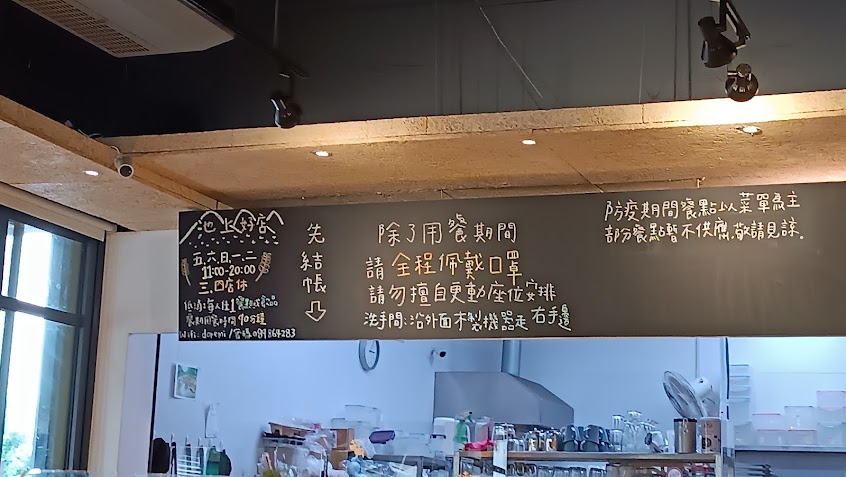 池上好店
五.六.日.一.二
11:00-20:00
三、四店休
低消:每人任1餐點或飲品
餐期用餐時間 90分鐘
Wifi: doremi /密碼 089864283
先結帳
除了用餐期間
請全程佩戴口罩
請勿擅自更動座位安排
洗手間:沿外面木製機器走右手邊
防疫期間餐點以菜單為主
部分餐點暫不供應,敬請見諒.